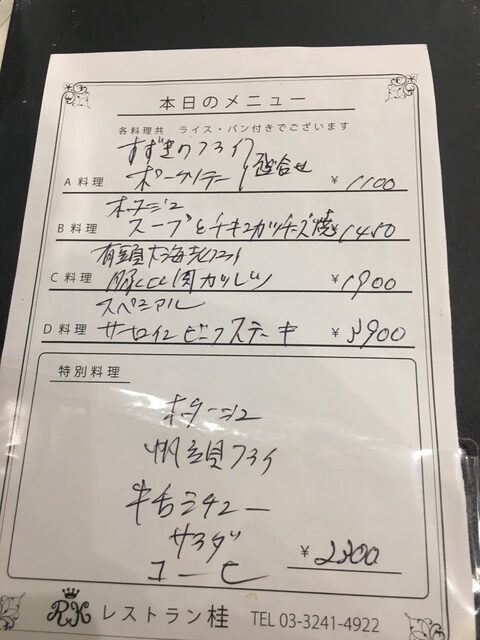 本日のメニュー
各料理共 ライス・パン付きでございます
すずきのフライ
A料理 ポークソテー 盛合せ ¥1100
ポタージュ
B料理 スープとチキンカツチーズ焼 1450
有頭大海老フライ
C料理 豚ヒレ肉カツレツ ¥1900
スペシャル
D料理 サーロインビーフステーキ ¥
特別料理
ポタージュ
帆立貝フライ
牛舌シチュー
サラダ
コーヒ
¥2300
RK レストラン桂 TEL 03-3241-4922